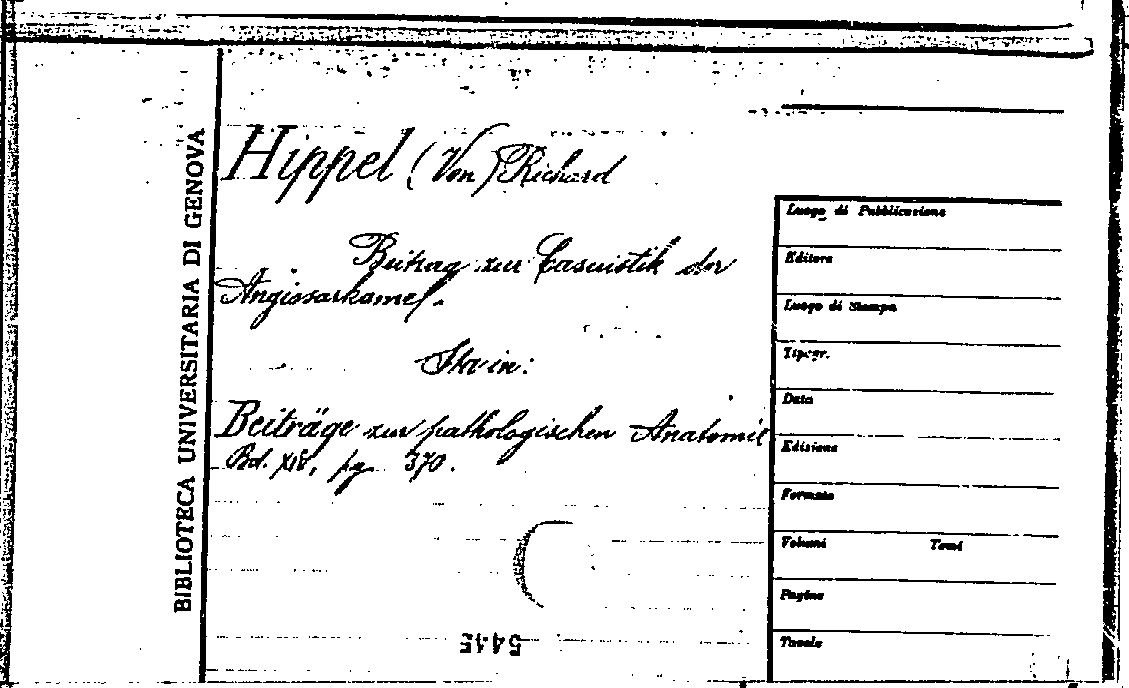 BIBLIOTECA UNIVERSITARIA DI GENOVA
Hippel (Von) Richard
Beitrag zur Casuistik der
Angiosarkome.
Sta in:
Beiträge zur pathologischen Anatomie
Bd. XIV, pg. 370.
5445
Luogo di Pubblicazione
Editore
Luogo di Stampa
Tipogr.
Data
Edizione
Formato
Volumi Tomi
Pagine
Tavole